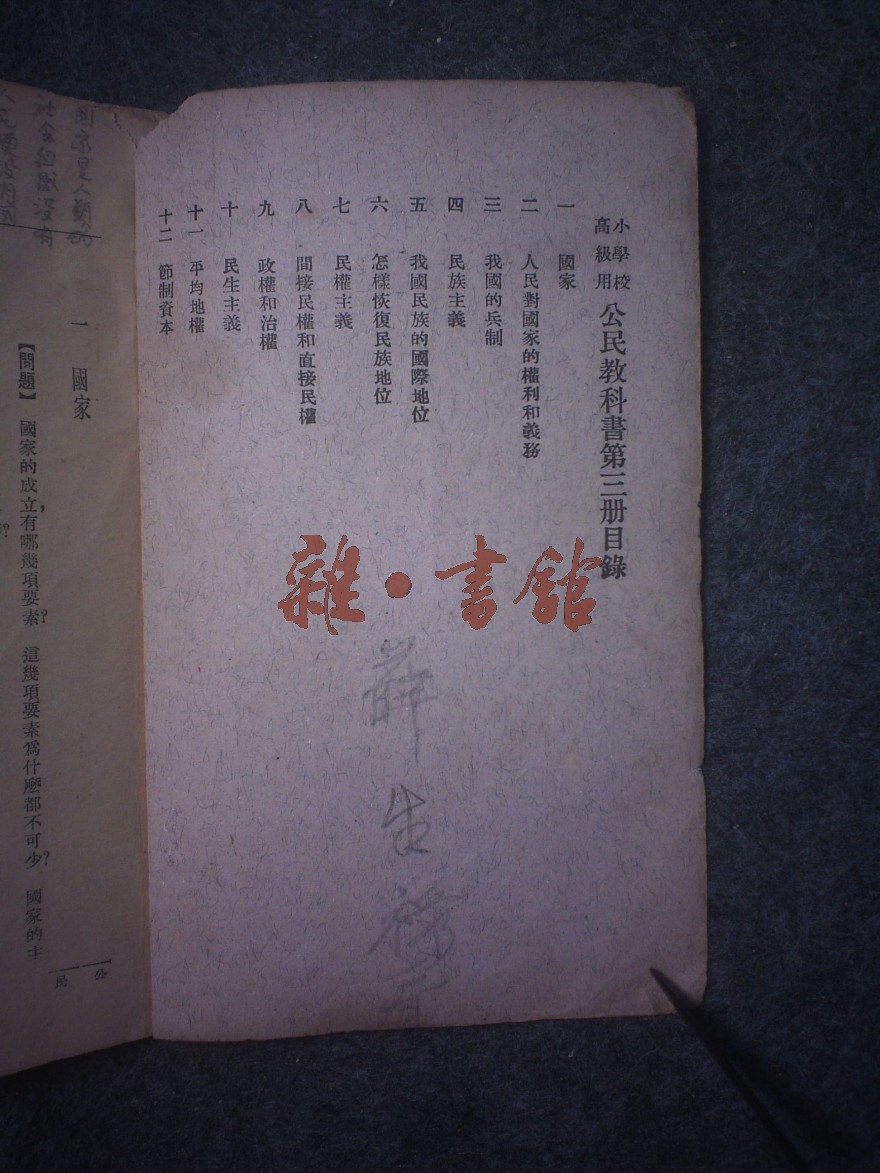 小學校高級用 公民教科書第三册目錄
一 國家
二 人民對國家的權利和義務
三 我國的兵制
四 民族主義
五 我國民族的國際地位
六 怎樣恢復民族地位
七 民權主義
八 間接民權和直接民權
九 政權和治權
十 民生主義
十一 平均地權
十二 節制資本
雜·書館
薛生
公民
國家是人類的
社會組織沒有
一 國家
【問題】 國家的成立,有哪幾項要素? 這幾項要素爲什麼都不可少? 國家的主